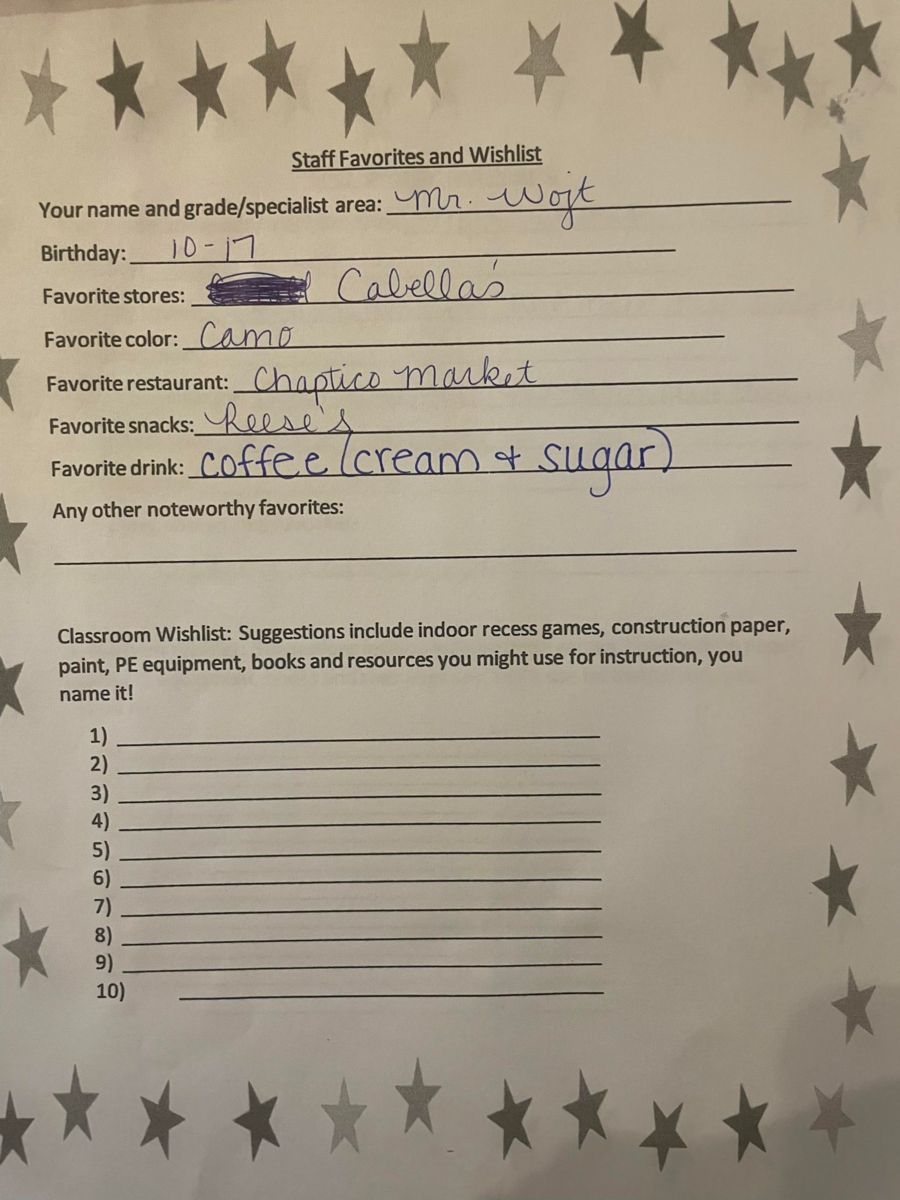 Staff Favorites and Wishlist
Your name and grade/specialist area: Mr. Wojt
Birthday: 10-17
Favorite stores: Cabella's
Favorite color: Camo
Favorite restaurant: Chaptico Market
Favorite snacks: Reese's
Favorite drink: coffee (cream + sugar)
Any other noteworthy favorites:
Classroom Wishlist: Suggestions include indoor recess games, construction paper,
paint, PE equipment, books and resources you might use for instruction, you
name it!
1)
2)
3)
4)
5)
6)
7)
8)
9)
10)